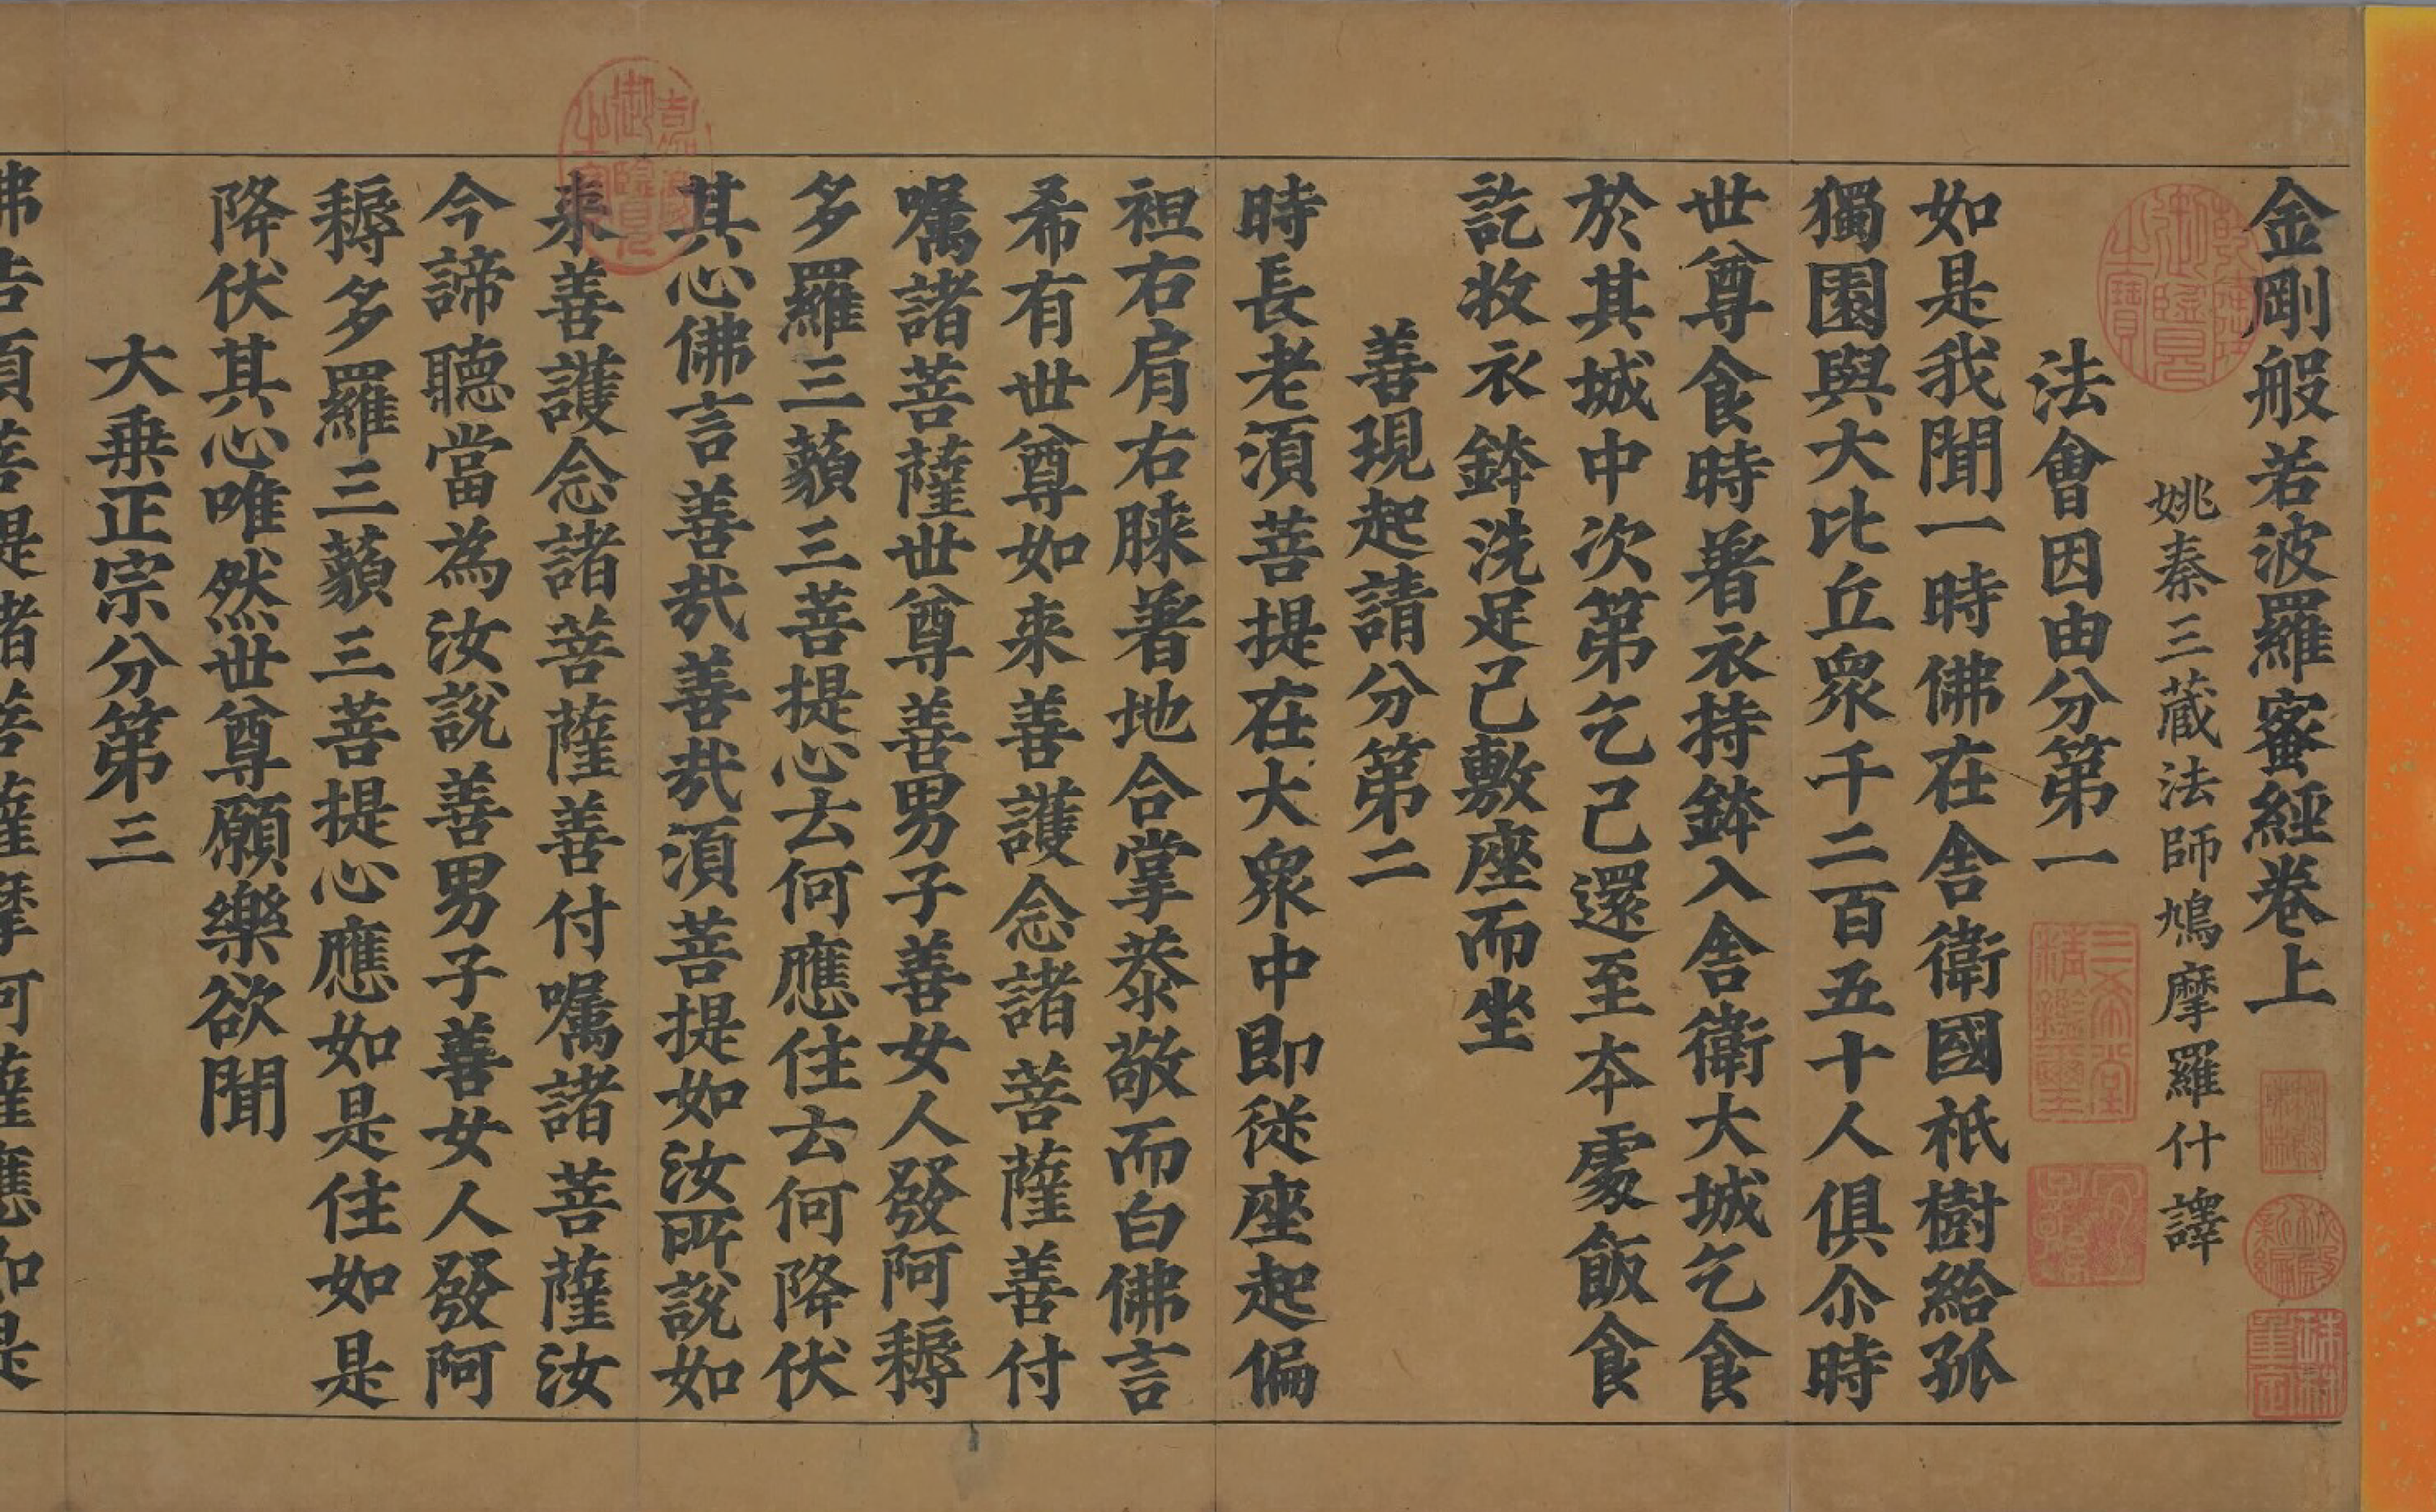 金剛般若波羅蜜經卷上
姚秦三藏法師鳩摩羅什譯
法會因由分第一
如是我聞一時佛在舍衛國祇樹給孤
獨園與大比丘眾千二百五十人俱尒時
世尊食時著衣持鉢入舍衛大城乞食
於其城中次第乞已還至本處飯食
訖收衣鉢洗足已敷座而坐
善現起請分第二
時長老須菩提在大眾中即從座起偏
袒右肩右膝著地合掌恭敬而白佛言
希有世尊如来善護念諸菩薩善付
囑諸菩薩世尊善男子善女人發阿耨
多羅三藐三菩提心云何應住云何降伏
其心佛言善哉善哉須菩提如汝所說如
来善護念諸菩薩善付囑諸菩薩汝
今諦聽當為汝說善男子善女人發阿
耨多羅三藐三菩提心應如是住如是
降伏其心唯然世尊願樂欲聞
大乗正宗分第三
佛告須菩提諸菩薩摩訶薩應如是
乾隆御覽之寶
三希堂精鑑璽
宜子孫
乾隆御覽之寶